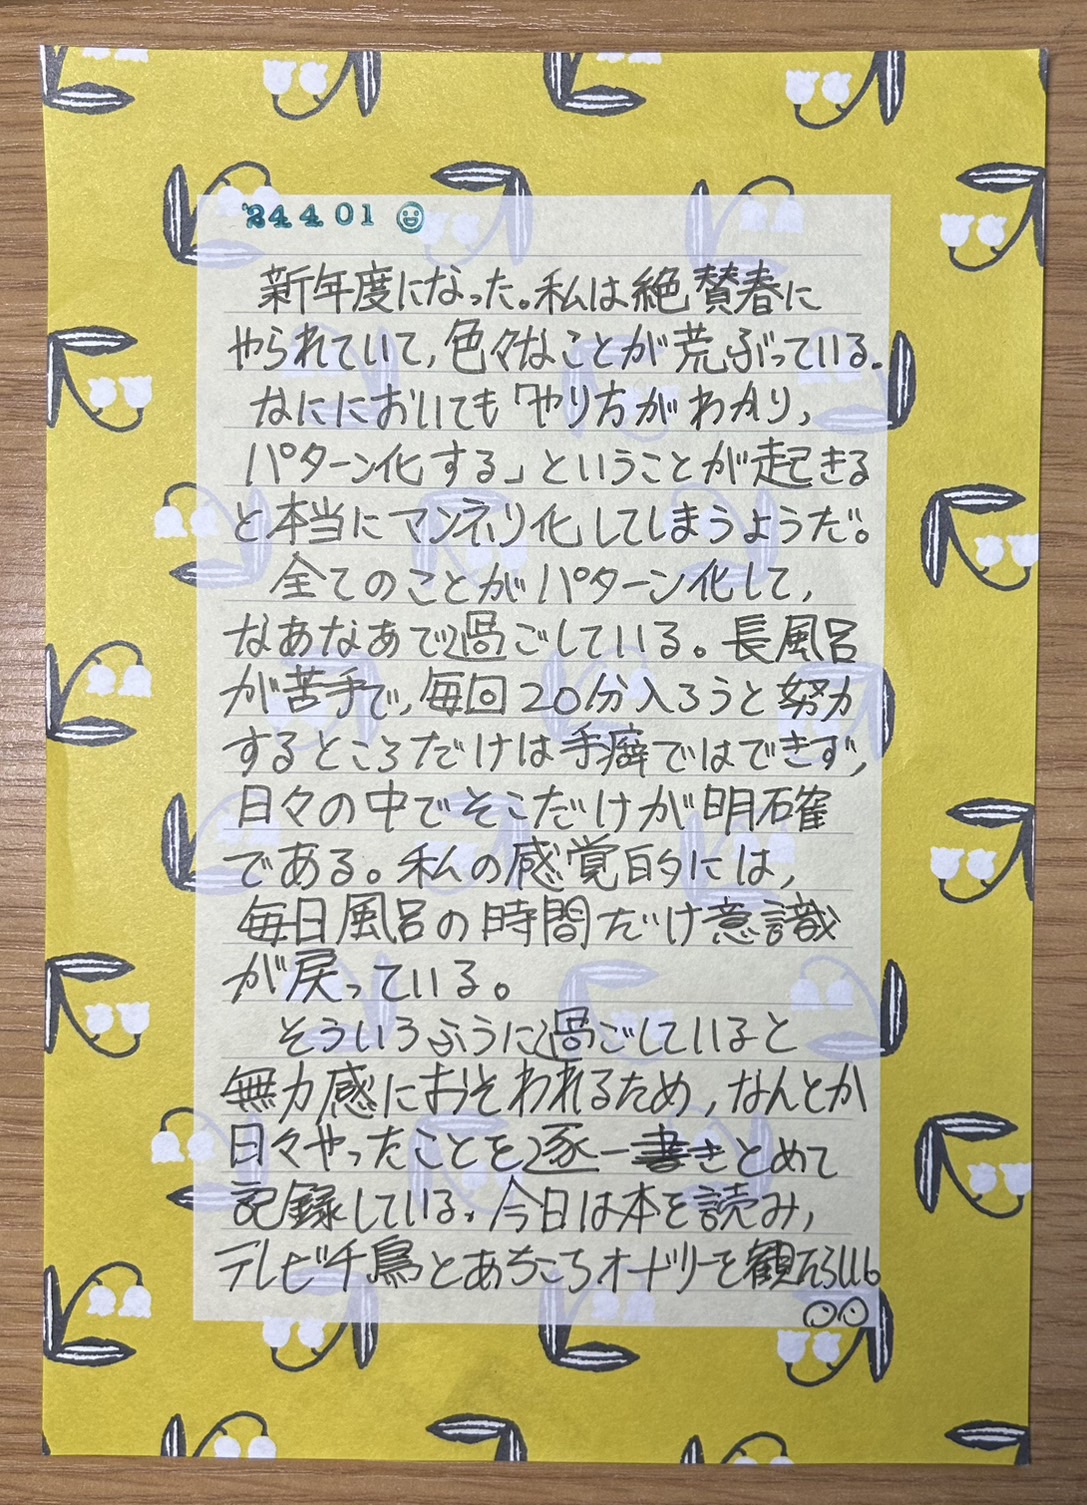 '24.4.01
新年度になった。私は絶賛春に
やられていて、色々なことが荒ぶっている。
なににおいても「やり方がわかり、
パターン化する」ということが起きる
と本当にマンネリ化してしまうようだ。
全てのことがパターン化して、
なあなあで過ごしている。長風呂
が苦手で、毎回20分入ろうと努力
するところだけは手癖ではできず、
日々の中でそこだけが明確
である。私の感覚的には、
毎日風呂の時間だけ意識
が戻っている。
そういうふうに過ごしていると
無力感におそわれるため、なんとか
日々やったことを逐一書きとめて
記録している。今日は本を読み、
テレビ千鳥とあちこちオードリーを観